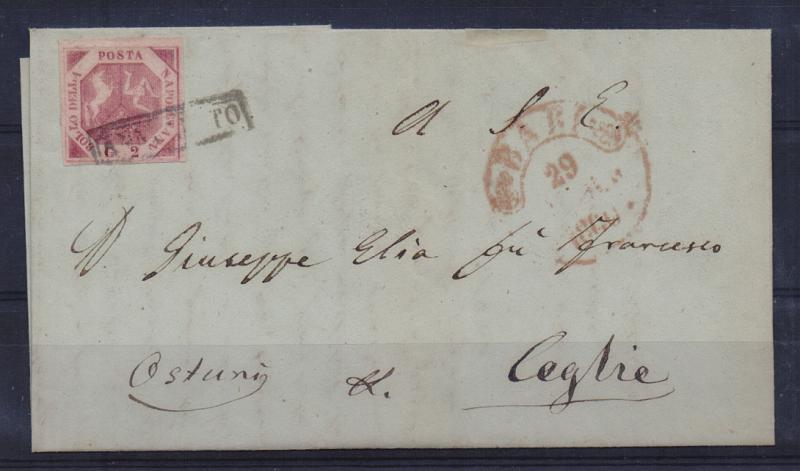 POSTA
NAPOLETANA
BOLLO DELLA
G. 2
TO
A S. E.
BARI
29
D. Giuseppe Elia fù Francesco
Ostuni
Ceglie